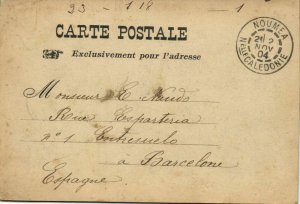 23 - 118 - 1
CARTE POSTALE
Exclusivement pour l'adresse
NOUMEA
NLLE CALEDONIE
2
NOV
04
Monsieur E
Rua Esparteria
n° 1 Entresuelo
à Barcelone
Espagne